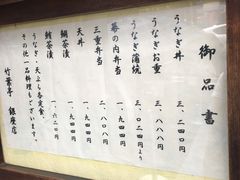 御品書
うなぎ丼 三、二四〇
うなぎお重 三、八八八
うなぎ蒲焼 三、二四〇より
幕の内弁当 一、九四四
三重弁当 二、八〇八
天丼 一、九四四
鯛茶漬 一、九四四
鮪茶漬 一、六二〇
うなぎ・天ぷら各定食、
その他一品料理もございます。
竹葉亭 銀座店